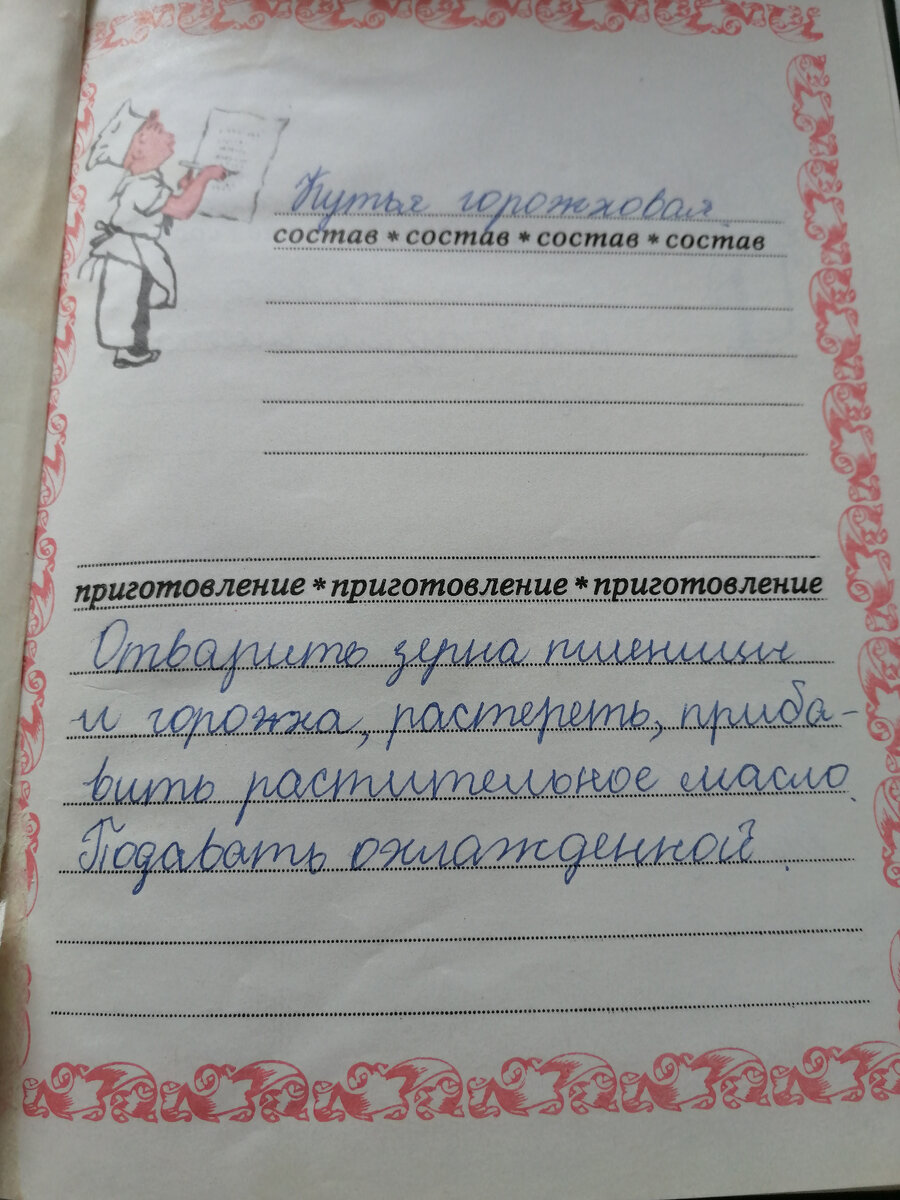 Кутья горожховая
состав * состав * состав * состав
приготовление * приготовление * приготовление
Отварить зерна пшеницы
и горожха, растереть, приба-
вить растительное масло.
Подавать охлажденной.